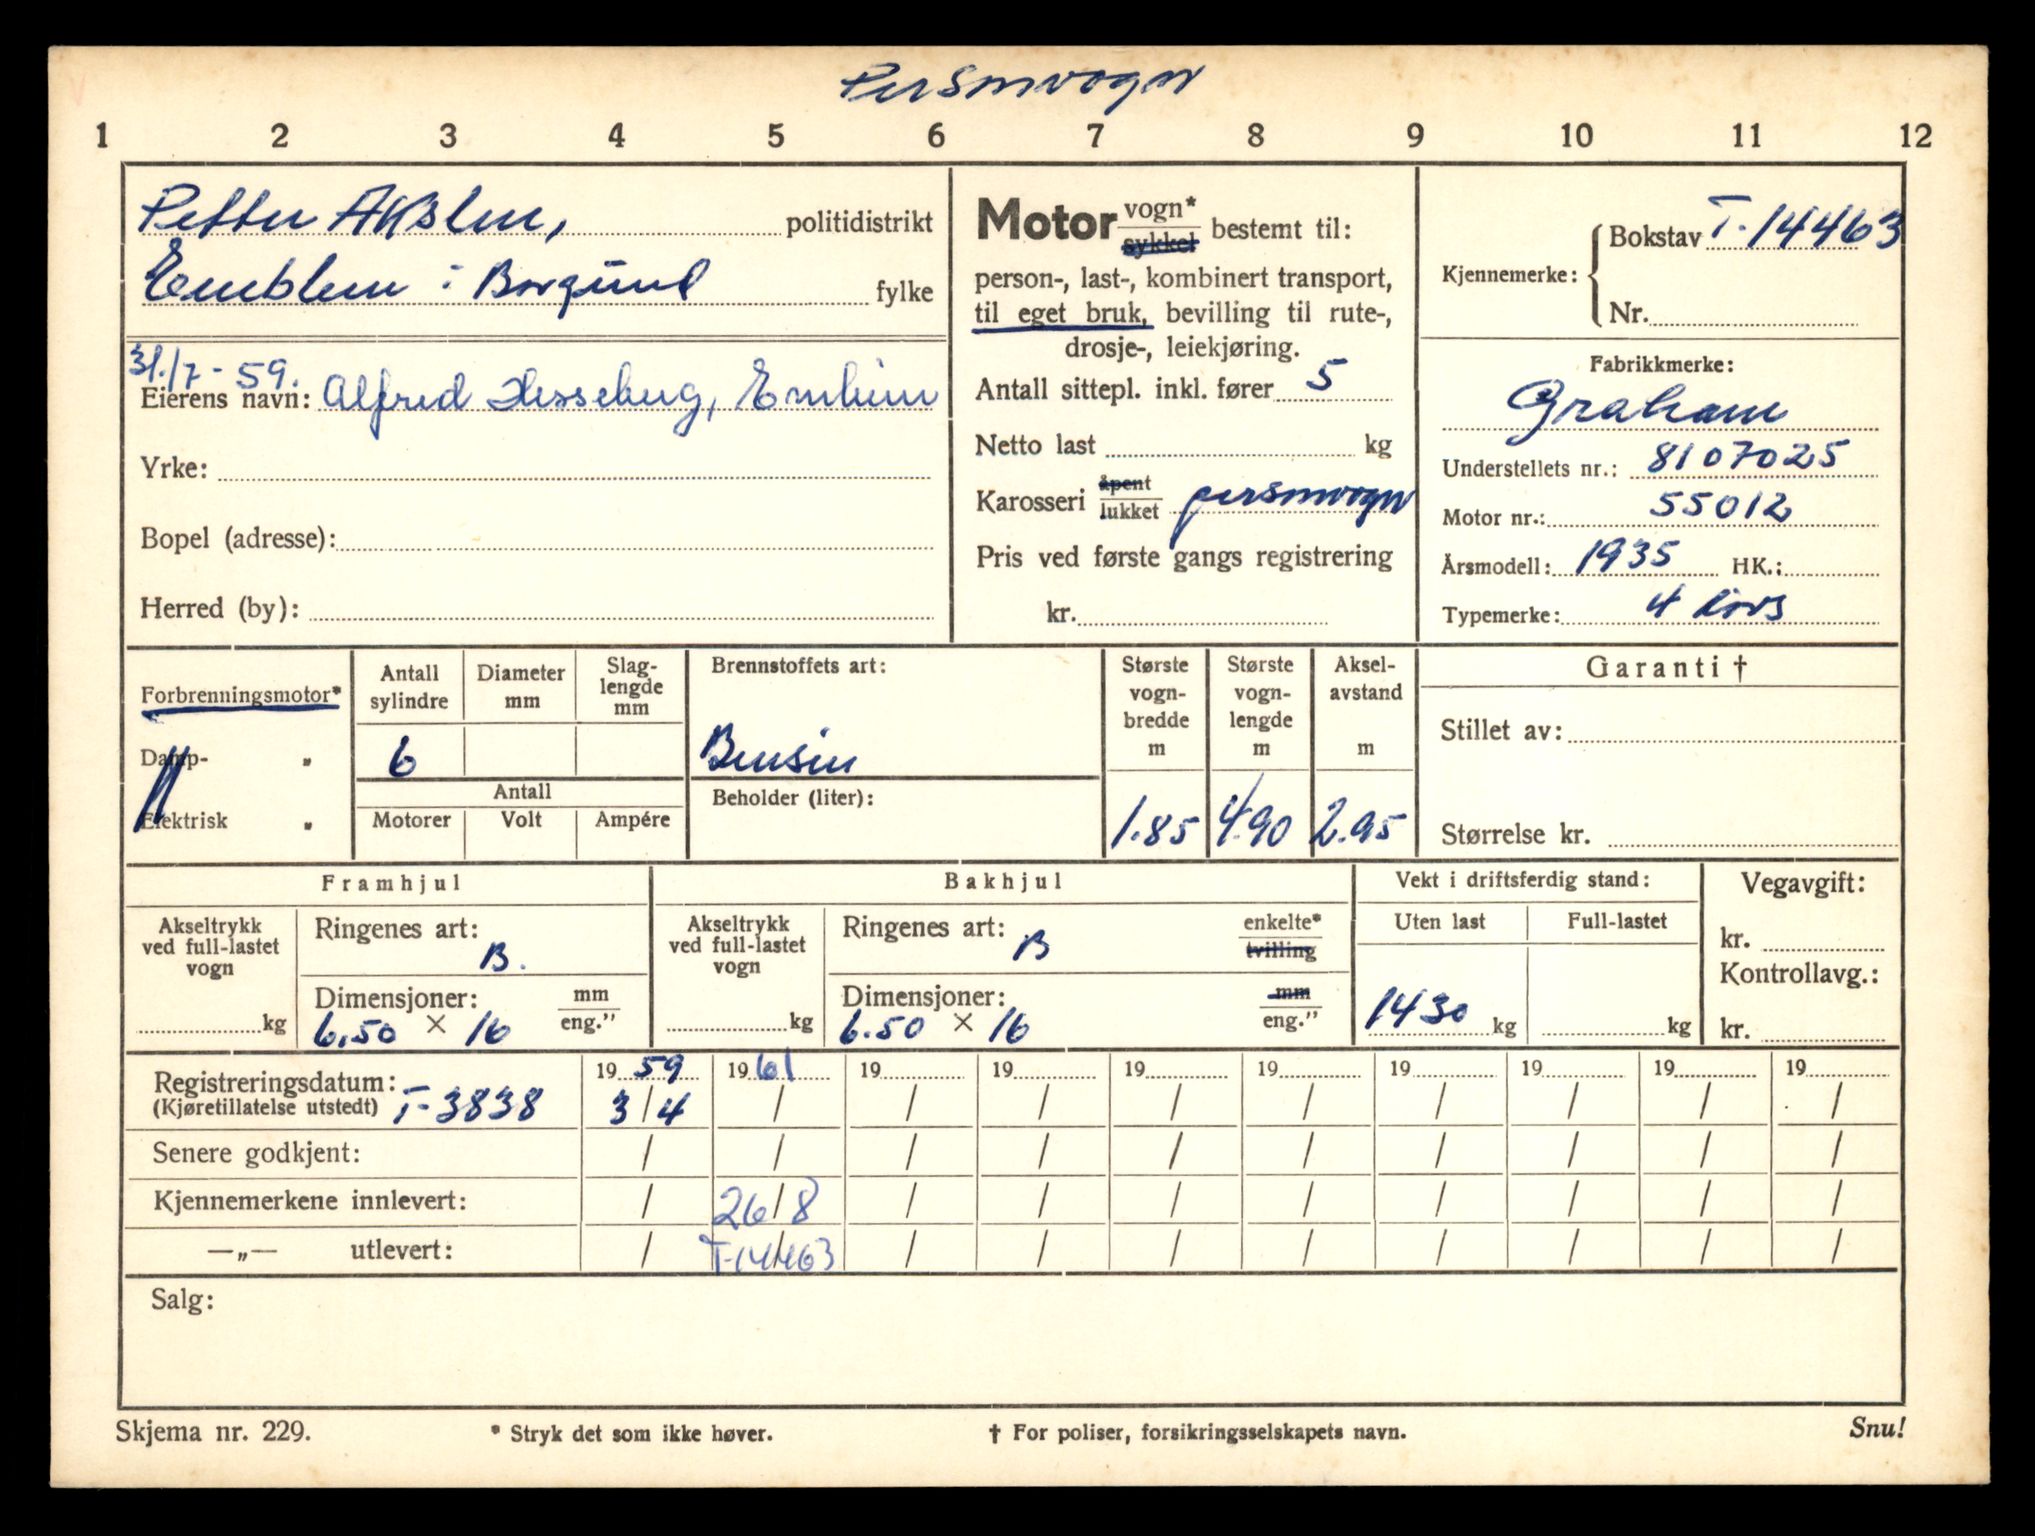 Personvogn
1 2 3 4 5 6 7 8 9 10 11 12
Petter Akslen, politidistrikt
Emblem i Borgund fylke
31./7 - 59.
Eierens navn: Alfred Hesseberg, Emblem
Yrke:
Bopel (adresse):
Herred (by):
Motor vogn* sykkel bestemt til:
person-, last-, kombinert transport,
til eget bruk, bevilling til rute-,
drosje-, leiekjøring.
Antall sittepl. inkl. fører 5
Netto last kg
Karosseri åpent lukket personvogn
Pris ved første gangs registrering
kr.
Kjennemerke: Bokstav T-14463
Nr.
Fabrikkmerke:
Graham
Understellets nr.: 8107025
Motor nr.: 55012
Årsmodell: 1935 HK.:
Typemerke: 4 dørs
Forbrenningsmotor*
Damp- "
Elektrisk "
Antall sylindre
6
Diameter mm
Slag-
lengde
mm
Antall
Motorer Volt Ampére
Brennstoffets art:
Bensin
Beholder (liter):
Største
vogn-
bredde
m
1.85
Største
vogn-
lengde
m
4.90
Aksel-
avstand
m
2.95
Garanti †
Stillet av:
Størrelse kr.
Framhjul
Akseltrykk
ved full-lastet
vogn
kg
Ringenes art:
B.
Dimensjoner: mm
6.50 × 16 eng."
Bakhjul
Akseltrykk
ved full-lastet
vogn
kg
Ringenes art: enkelte*
B tvilling
Dimensjoner: mm
6.50 × 16 eng."
Vekt i driftsferdig stand:
Uten last Full-lastet
1430 kg kg
Vegavgift:
kr.
Kontrollavg.:
kr.
19 59 19 61 19 19 19 19 19 19 19 19
Registreringsdatum:
(Kjøretillatelse utstedt) T-3838 3/4 / / / / / / / / /
Senere godkjent: / / / / / / / / / /
Kjennemerkene innlevert: / 26/8 / / / / / / / /
—„— utlevert: / T-14463 / / / / / / / /
Salg:
Skjema nr. 229. * Stryk det som ikke høver. † For poliser, forsikringsselskapets navn. Snu!